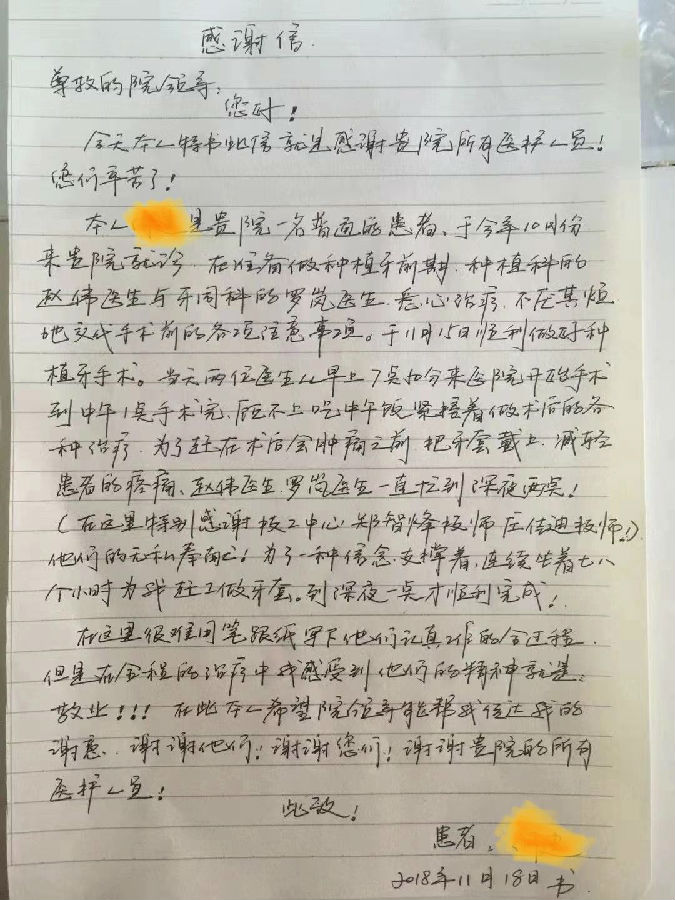 感谢信.
尊敬的院领导:
您好!
今天本人特书此信就是感谢贵院所有医护人员!
您们辛苦了!
本人 是贵院一名普通的患者、于今年10月份
来贵院就诊.在准备做种植牙前期.种植科的
赵伟医生与牙周科的罗岚医生.悉心治疗.不厌其烦
地交代手术前的各项注意事项。于11月15日顺利做好种
植牙手术。当天两位医生从早上7点50分来医院开始手术
到中午1点手术完.顾不上吃中午饭紧接着做术后的各
种治疗.为了赶在术后会肿痛之前.把牙套戴上.减轻
患者的疼痛、赵伟医生.罗岚医生一直忙到深夜两点!
(在这里特别感谢技工中心:郑智烽技师 庄佳迪技师!)
他们的无私奉献!为了一种信念.支撑着,连续坐着七八
个小时为我赶工做牙套。到深夜一点才顺利完成!
在这里很难用笔跟纸写下他们认真工作的全过程.
但是在全程的治疗中我感受到他们的精神就是:
敬业!!!在此本人希望院领导能帮我传达我的
谢意.谢谢他们!谢谢您们!谢谢贵院的所有
医护人员!
此致!
患者:
2018年11月18日书